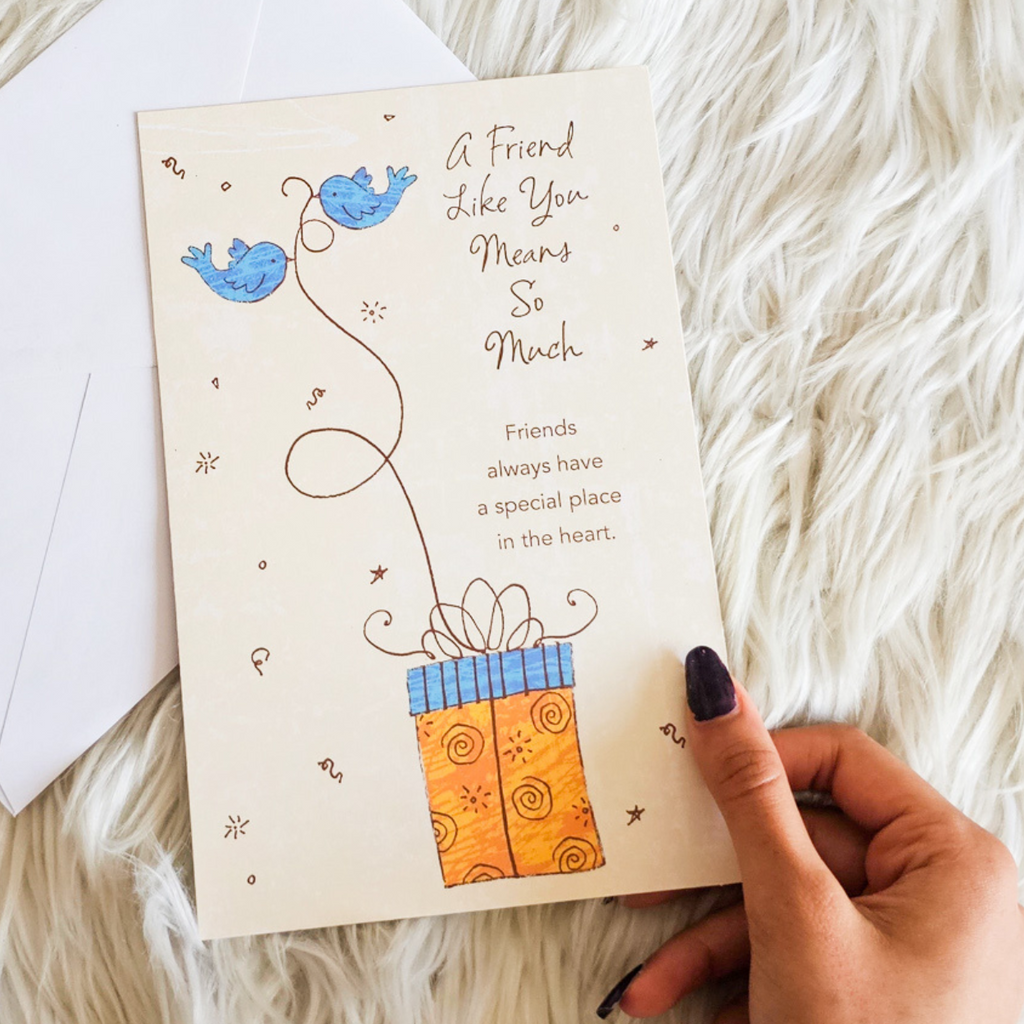 A Friend
Like You
Means
So
Much
Friends
always have
a special place
in the heart.